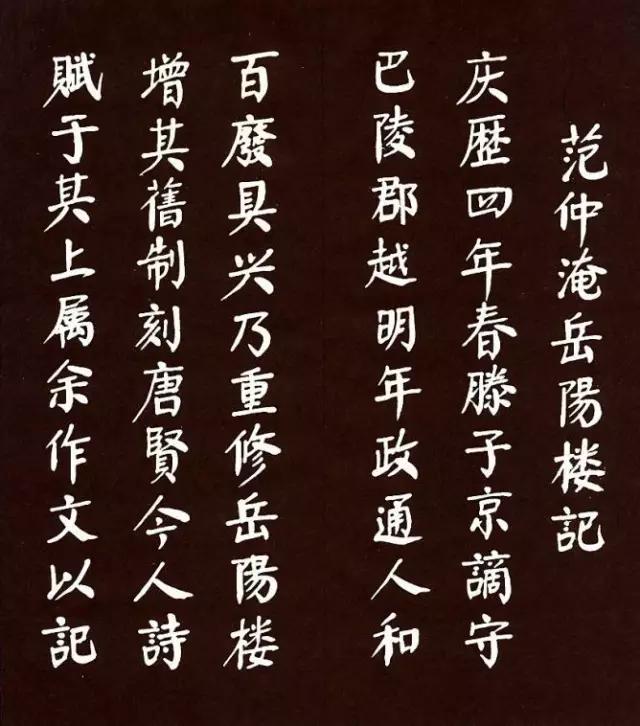 范仲淹岳陽楼記
庆歴四年春滕子京謫守
巴陵郡越明年政通人和
百廢具兴乃重修岳陽楼
增其舊制刻唐賢今人詩
赋于其上属余作文以記